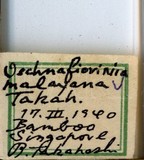 Uechnafiorinia
malayana ✓
Takah.
17. III, 1940
Bamboo
Singapore
R. Takahashi